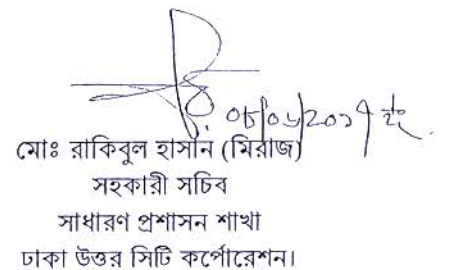 ০৮/০৬/২০১৭ ইং
মোঃ রাকিবুল হাসান (মিরাজ)
সহকারী সচিব
সাধারণ প্রশাসন শাখা
ঢাকা উত্তর সিটি কর্পোরেশন।